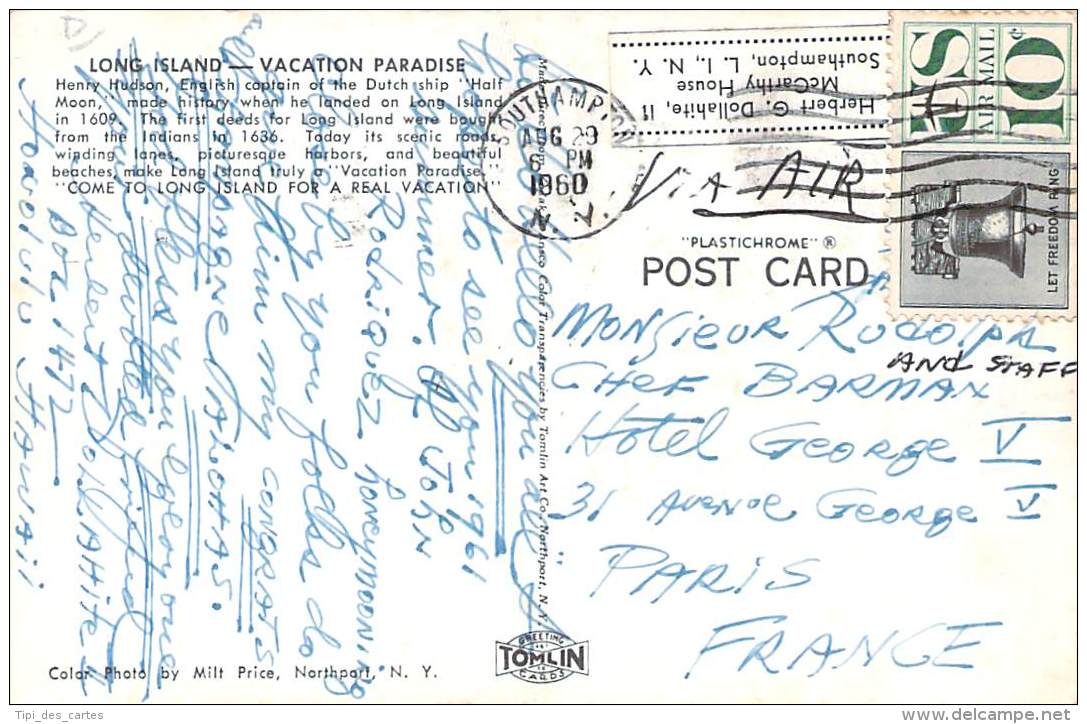 LONG ISLAND — VACATION PARADISE
Henry Hudson, English captain of the Dutch ship "Half
Moon," made history when he landed on Long Island
in 1609. The first deeds for Long Island were bought
from the Indians in 1636. Today its scenic roads,
winding lanes, picturesque harbors, and beautiful
beaches, make Long Island truly a "Vacation Paradise."
"COME TO LONG ISLAND FOR A REAL VACATION"
Color Photo by Milt Price, Northport, N. Y.
Color Transparencies by Tomlin Art Co., Northport, N. Y.
Hello you all
to see you 1961
summer. If John
Rodriguez honeymooning
by you folks do
give him my CONGRATS
ALOHAS.
bless you everyone
your devoted friend
Herbert Dollahite II
Box 1472
Honolulu Hawaii
Herbert G. Dollahite, II
McCarthy House
Southampton, L. I., N. Y.
SOUTHAMPTON
AUG 29
6 PM
1960
N. Y.
US
AIR MAIL
10¢
LET FREEDOM RING
VIA AIR
"PLASTICHROME" ®
POST CARD
MONSIEUR RUDOLPH
AND STAFF
CHEF BARMAN
Hotel George V
31 AVENUE George V
PARIS
FRANCE
GREETING
TOMLIN
CARDS
Tipi_des_cartes
www.delcampe.net